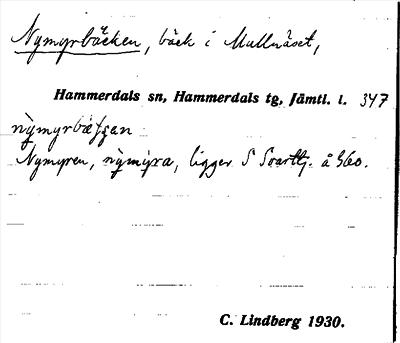 Nymyrbäcken, bäck i Mullnäset,
Hammerdals sn, Hammerdals tg, Jämtl. l. 347
Nymyren, nỳmỳra, ligger S Svarttj. å 360.
C. Lindberg 1930.